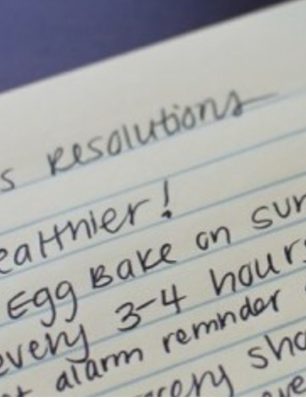 s Resolutions
ealthier!
Egg Bake on sun
every 3-4 hours
alarm remnder